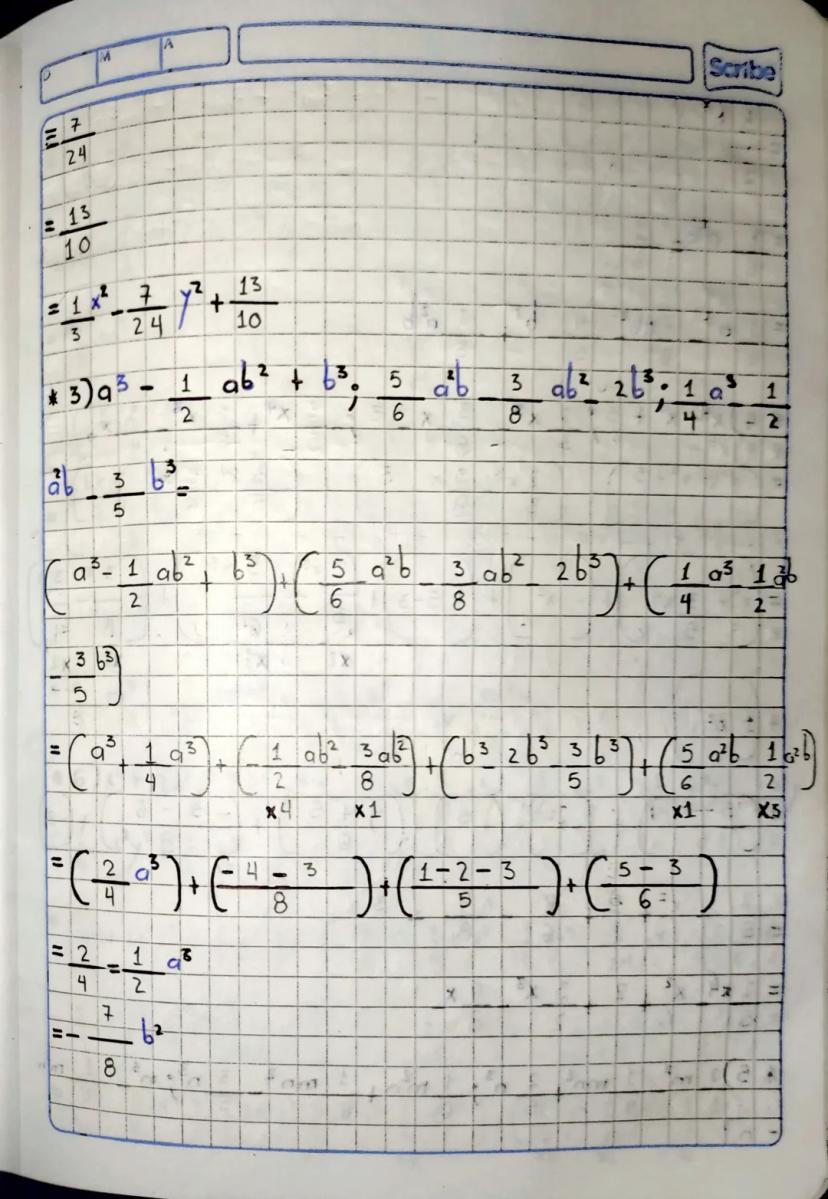 D M A Scribe
= 7/24
= 13/10
= 1/3 x² - 7/24 y² + 13/10
* 3) a³ - 1/2 ab² + b³; 5/6 a²b - 3/8 ab² - 2b³; 1/4 a³ - 1/2
a²b - 3/5 b³ =
(a³ - 1/2 ab² + b³) + (5/6 a²b - 3/8 ab² - 2b³) + (1/4 a³ - 1/2 a²b
- 3/5 b³)
= (a³ + 1/4 a³) + (- 1/2 ab² - 3/8 ab²) + (b³ - 2b³ - 3/5 b³) + (5/6 a²b - 1/2 a²b)
x4 x1 x1 x3
= (2/4 a³) + (- 4 - 3 / 8) + (1 - 2 - 3 / 5) + (5 - 3 / 6)
= 2/4 = 1/2 a³
= - 7/8 b²